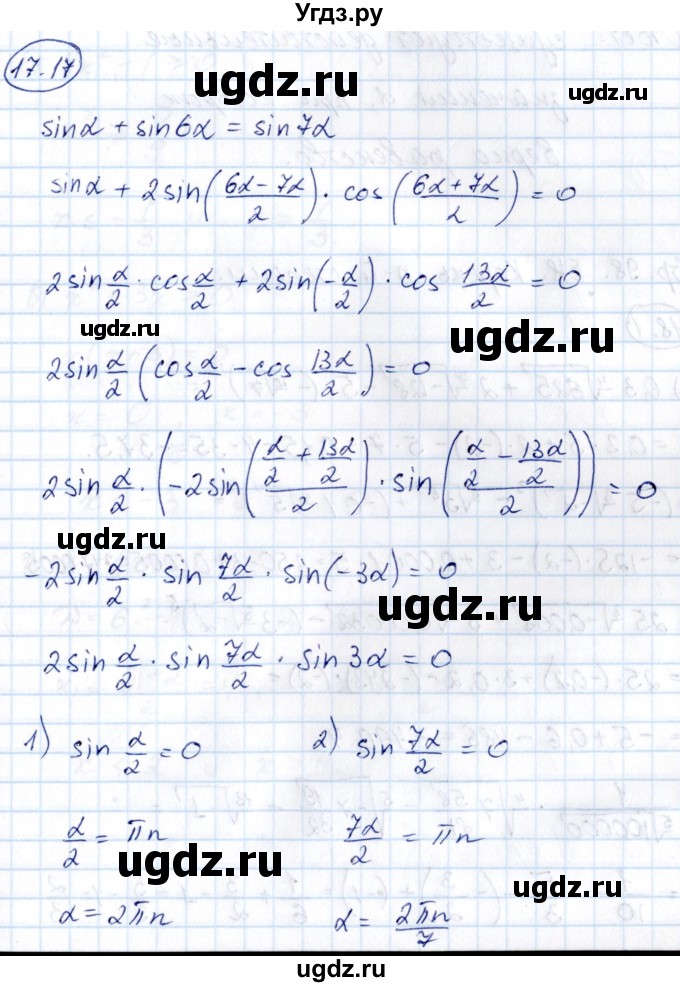 Угдз.ру
17.17
ugdz.ru
sinα + sin6α = sin7α
sinα + 2sin((6α-7α)/2) · cos((6α+7α)/2) = 0
2sin α/2 · cos α/2 + 2sin(-α/2) · cos 13α/2 = 0
ugdz.ru
2sin α/2 (cos α/2 - cos 13α/2) = 0
2sin α/2 · (-2sin((α/2 + 13α/2)/2) · sin((α/2 - 13α/2)/2)) = 0
ugdz.ru
-2sin α/2 · sin 7α/2 · sin(-3α) = 0
ugdz.ru
2sin α/2 · sin 7α/2 · sin 3α = 0
1) sin α/2 = 0 2) sin 7α/2 = 0
α/2 = πn 7α/2 = πn
ugdz.ru
α = 2πn α = 2πn/7
ugdz.ru